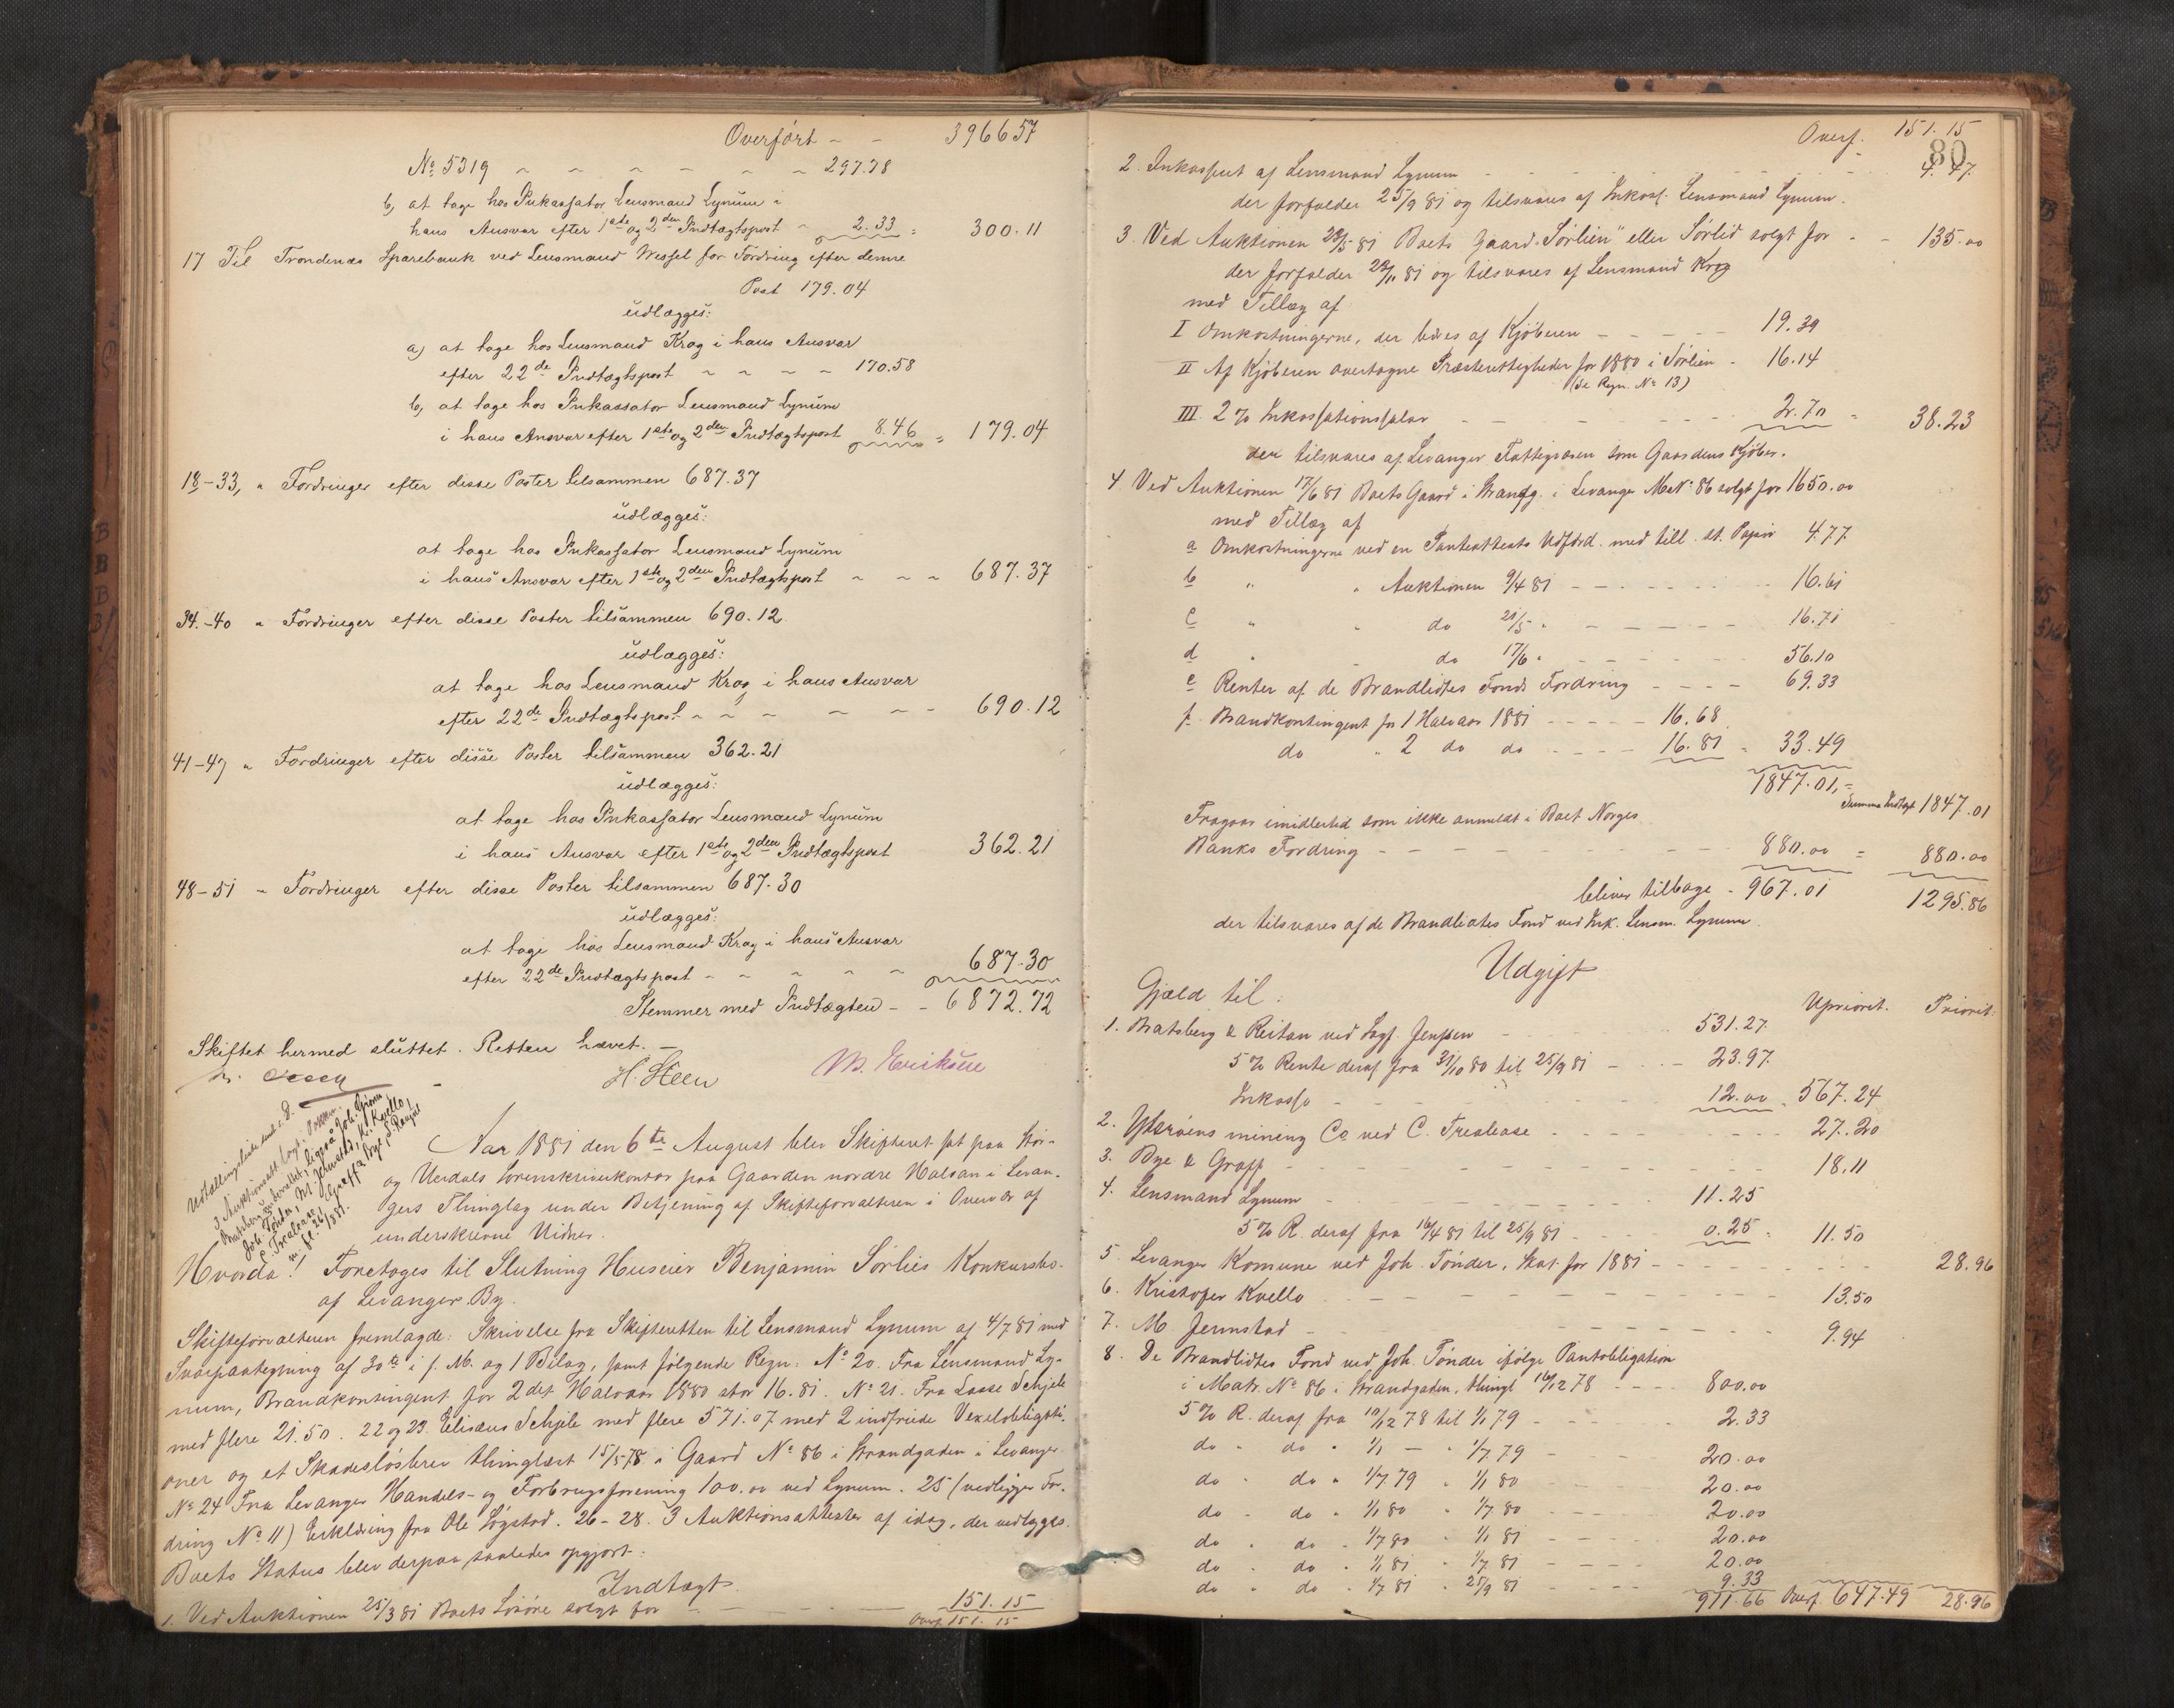 Overført - - 396657
No 5319 - - - - - - 297.78
b, at tage hos Inkassator Lensmand Lynum i
hans Ansvar efter 1ste og 2den Indtægtspost - 2.33 = 300.11
17 Til Trondenæs Sparebank ved Lensmand Wessel for Fordring efter denne
Post 179.04
udlægges:
a) at tage hos Lensmand Krog i hans Ansvar
efter 22de Indtægtspost - - - - 170.58
b, at tage hos Inkassator Lensmand Lynum
i hans Ansvar efter 1ste og 2den Indtægtspost 8.46 = 179.04
18-33, " Fordringer efter disse Poster tilsammen 687.37
udlægges:
at tage hos Inkassator Lensmand Lynum
i hans Ansvar efter 1ste og 2den Indtægtspost - - - 687.37
34.-40 " Fordringer efter disse Poster tilsammen 690.12
udlægges:
at tage hos Lensmand Krog i hans Ansvar
efter 22de Indtægtspost - - - - - - 690.12
41-47 " Fordringer efter disse Poster tilsammen 362.21
udlægges:
at tage hos Inkassator Lensmand Lynum
i hans Ansvar efter 1ste og 2den Indtægtspost 362.21
48-51 " Fordringer efter disse Poster tilsammen 687.30
udlægges:
at tage hos Lensmand Krog i hans Ansvar
efter 22de Indtægtspost - - - - - 687.30
Stemmer med Indtægten - - 6872.72
Skiftet hermed sluttet. Retten hævet. -
H. Steen M. Eriksen
Aar 1881 den 6te August blev Skifteret sat paa Stør-
og Værdals Sorenskriverkontor paa Gaarden nordre Halsan i Levan-
gers Thinglag under Betjening af Skifteforvalteren i Overvær af
underskrevne Vidner.
Hvorda! Foretoges til Slutning Huseier Benjamin Sørlies Konkursbo
af Levanger By.
Skifteforvalteren fremlagde: Skrivelse fra Skifteretten til Lensmand Lynum af 4/7 81 med
Svarpaategning af 30te i f. M. og 1 Bilag, samt følgende Regn: No 20. Fra Lensmand Ly-
num, Brandkontingent for 2det Halvaar 1880 stor 16.81. No 21. Fra Lasse Schjele
med flere 21.50. 22 og 23. Elisæus Schjele med flere 571.07 med 2 indfriede Vexelobligati-
oner og et Skadesløsbrev thinglæst 15/5 78 i Gaard No 86 i Strandgaden i Levanger.
No 24 Fra Levanger Handels- og Forbrugsforening 100.00 ved Lynum. 25 (vedligger For-
dring No 11) Erklæring fra Ole Løgstad. 26-28. 3 Auktionsattester af idag, der vedlægges.
Boets Status blev derpaa saaledes opgjort:
Indtægt
1. Ved Auktionen 25/3 81 Boets Løsøre solgt for - - - 151.15
Overf. 151.15
Overf. 151.15
80
2. Inkasseret af Lensmand Lynum - - - - - 4.47
der forfalder 25/9 81 og tilsvares af Inkass. Lensmand Lynum.
3. Ved Auktionen 28/5 81 Boets Gaard "Sørlien" eller Sørlid solgt for - - 135.00
der forfalder 28/11 81 og tilsvares af Lensmand Krog
med Tillæg af
I Omkostningerne, der bæres af Kjøberen - - - - 19.39
II Af Kjøberen overtagne Præsterettigheder for 1880 i Sørlien - 16.14
(se Regn. No 13)
III 2% Inkassationssalær - - - - - 2.70 = 38.23
der tilsvares af Levanger Fattigvæsen som Gaardens Kjøber.
4. Ved Auktionen 17/6 81 Boets Gaard i Strandg. i Levanger M.No 86 solgt for 1650.00
med Tillæg af
a Omkostningerne ved en Pantattests Udfærd. med till. st. Papir 4.77
b " " Auktionen 9/4 81 - - - - - 16.61
c " " do 21/5 " - - - - - 16.71
d " " do 17/6 " - - - - - 56.10
e Renter af de Brandlidtes Fonds Fordring - - - - 69.33
f. Brandkontingent for 1 Halvaar 1881 - - - - - 16.68
do " 2 do do - - - - 16.81 = 33.49
1847.01,=
Summa Indtægt 1847.01
Fragaar imidlertid som ikke anmeldt i Boet Norges
Banks Fordring - - - - - - - 880.00 = 880.00
bliver tilbage - 967.01 1295.86
der tilsvares af de Brandlidtes Fond ved Ink. Lensm. Lynum
Udgift
Gjæld til: Uprioret. Priorit.
1. Bratsberg & Reitan ved Sagf. Jenssen - 531.27
5% Rente deraf fra 31/10 80 til 25/9 81 - - - 23.97
Inkasso - - - - - 12.00 . 567.24
2. Ytterøens mining Co ved C. Trealease - - - - 27.20
3. Bye & Graff - - - - - - - 18.11
4. Lensmand Lynum - - - - - 11.25
5% R. deraf fra 16/4 81 til 25/9 81 - - - 0.25 = 11.50
5. Levanger Komune ved Joh. Tønder, Skat for 1881 - - - - - 28.96
6. Kristofer Kvello - - - - - - - 13.50
7. M. Jermstad - - - - - - - 9.94
8. De Brandlidtes Fond ved Joh. Tønder ifølge Pantobligation
i Matr. No 86 i Strandgaden, thingl 16/12 78 - - - - 800.00
5% R. deraf fra 10/12 78 til 1/1 79 - - - - 2.33
do " do " 1/1 - " 1/7 79 - 20.00
do " do " 1/7 79 " 1/1 80 20.00
do " do " 1/1 80 " 1/7 80 - - - - 20.00
do " do " 1/7 80 " 1/1 81 20.00
do " do " 1/1 81 " 1/7 81 - - - - 20.00
do " do " 1/7 81 " 25/9 81 - - - - 9.33
911.66 Overf. 647.49 28.96